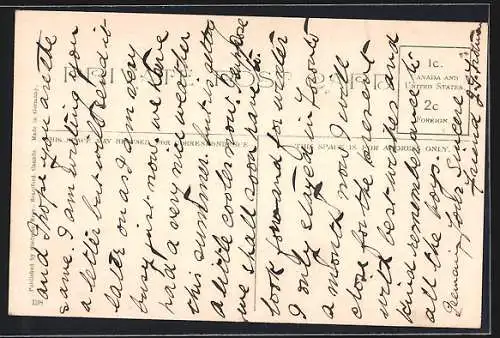 PRIVATE POST CARD
1c.
CANADA AND
UNITED STATES
2c
FOREIGN
THIS SPACE MAY BE USED FOR CORRESPONDENCE
THIS SPACE IS FOR ADDRESS ONLY.
Made in Germany.
Canada
Published by
and I hope you are the
same. I am writing you
a letter but will send it
later on as I am very
busy just now. we have
had a very nice weather
this summer. but is getting
a little cooler now. I suppose
we shall soon have to
look forward for winter
I only stayed in Toronto
a month now I will
close for the present
with best wishes and
kind remembrances to
all the boys.
Remaing your sincere
friend